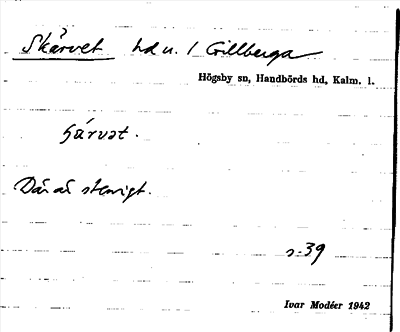 Skärvet hd u. 1 Gillberga
Högsby sn, Handbörds hd, Kalm. l.
Där är stenigt.
s. 39
Ivar Modéer 1942